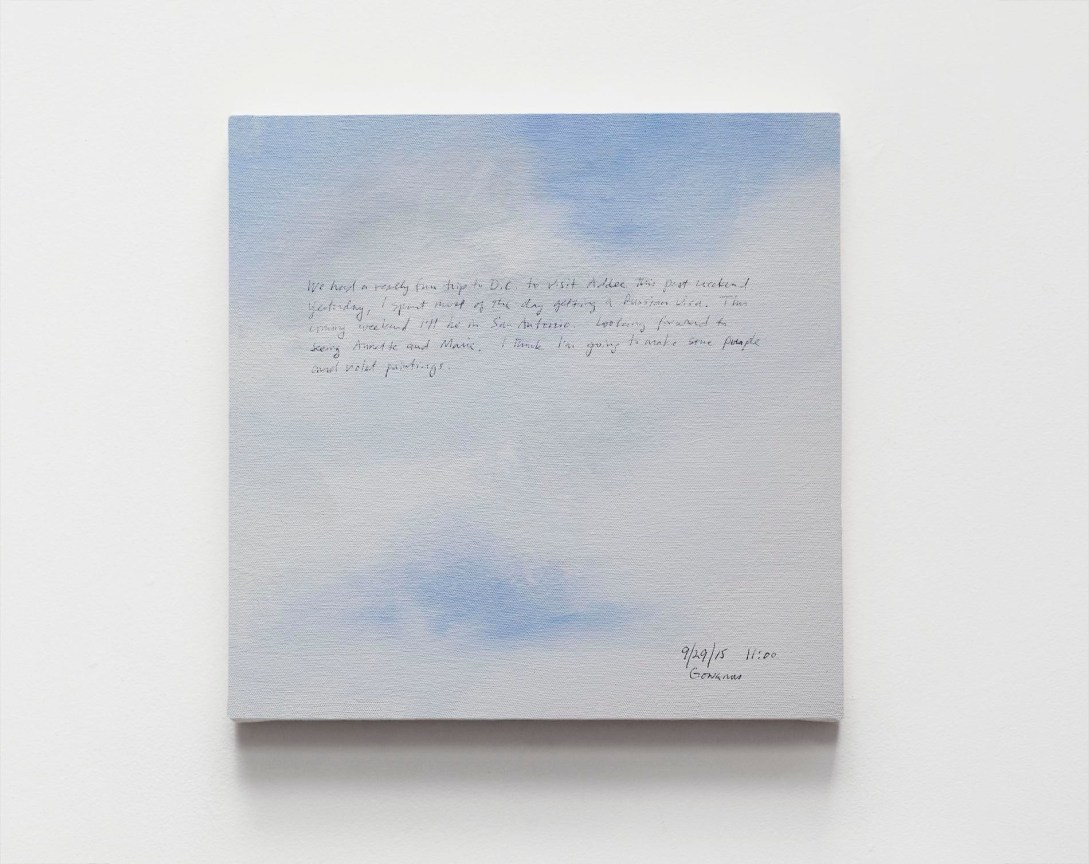 We had a really fun trip to D.C to visit Addee this past weekend
Yesterday, I spent most of the day getting a Russian visa. This
coming weekend I'll be in San Antonio. Looking forward to
seeing Annette and Marie. I think I'm going to make some purple
and violet paintings.
9/29/15 11:00
Gowanus